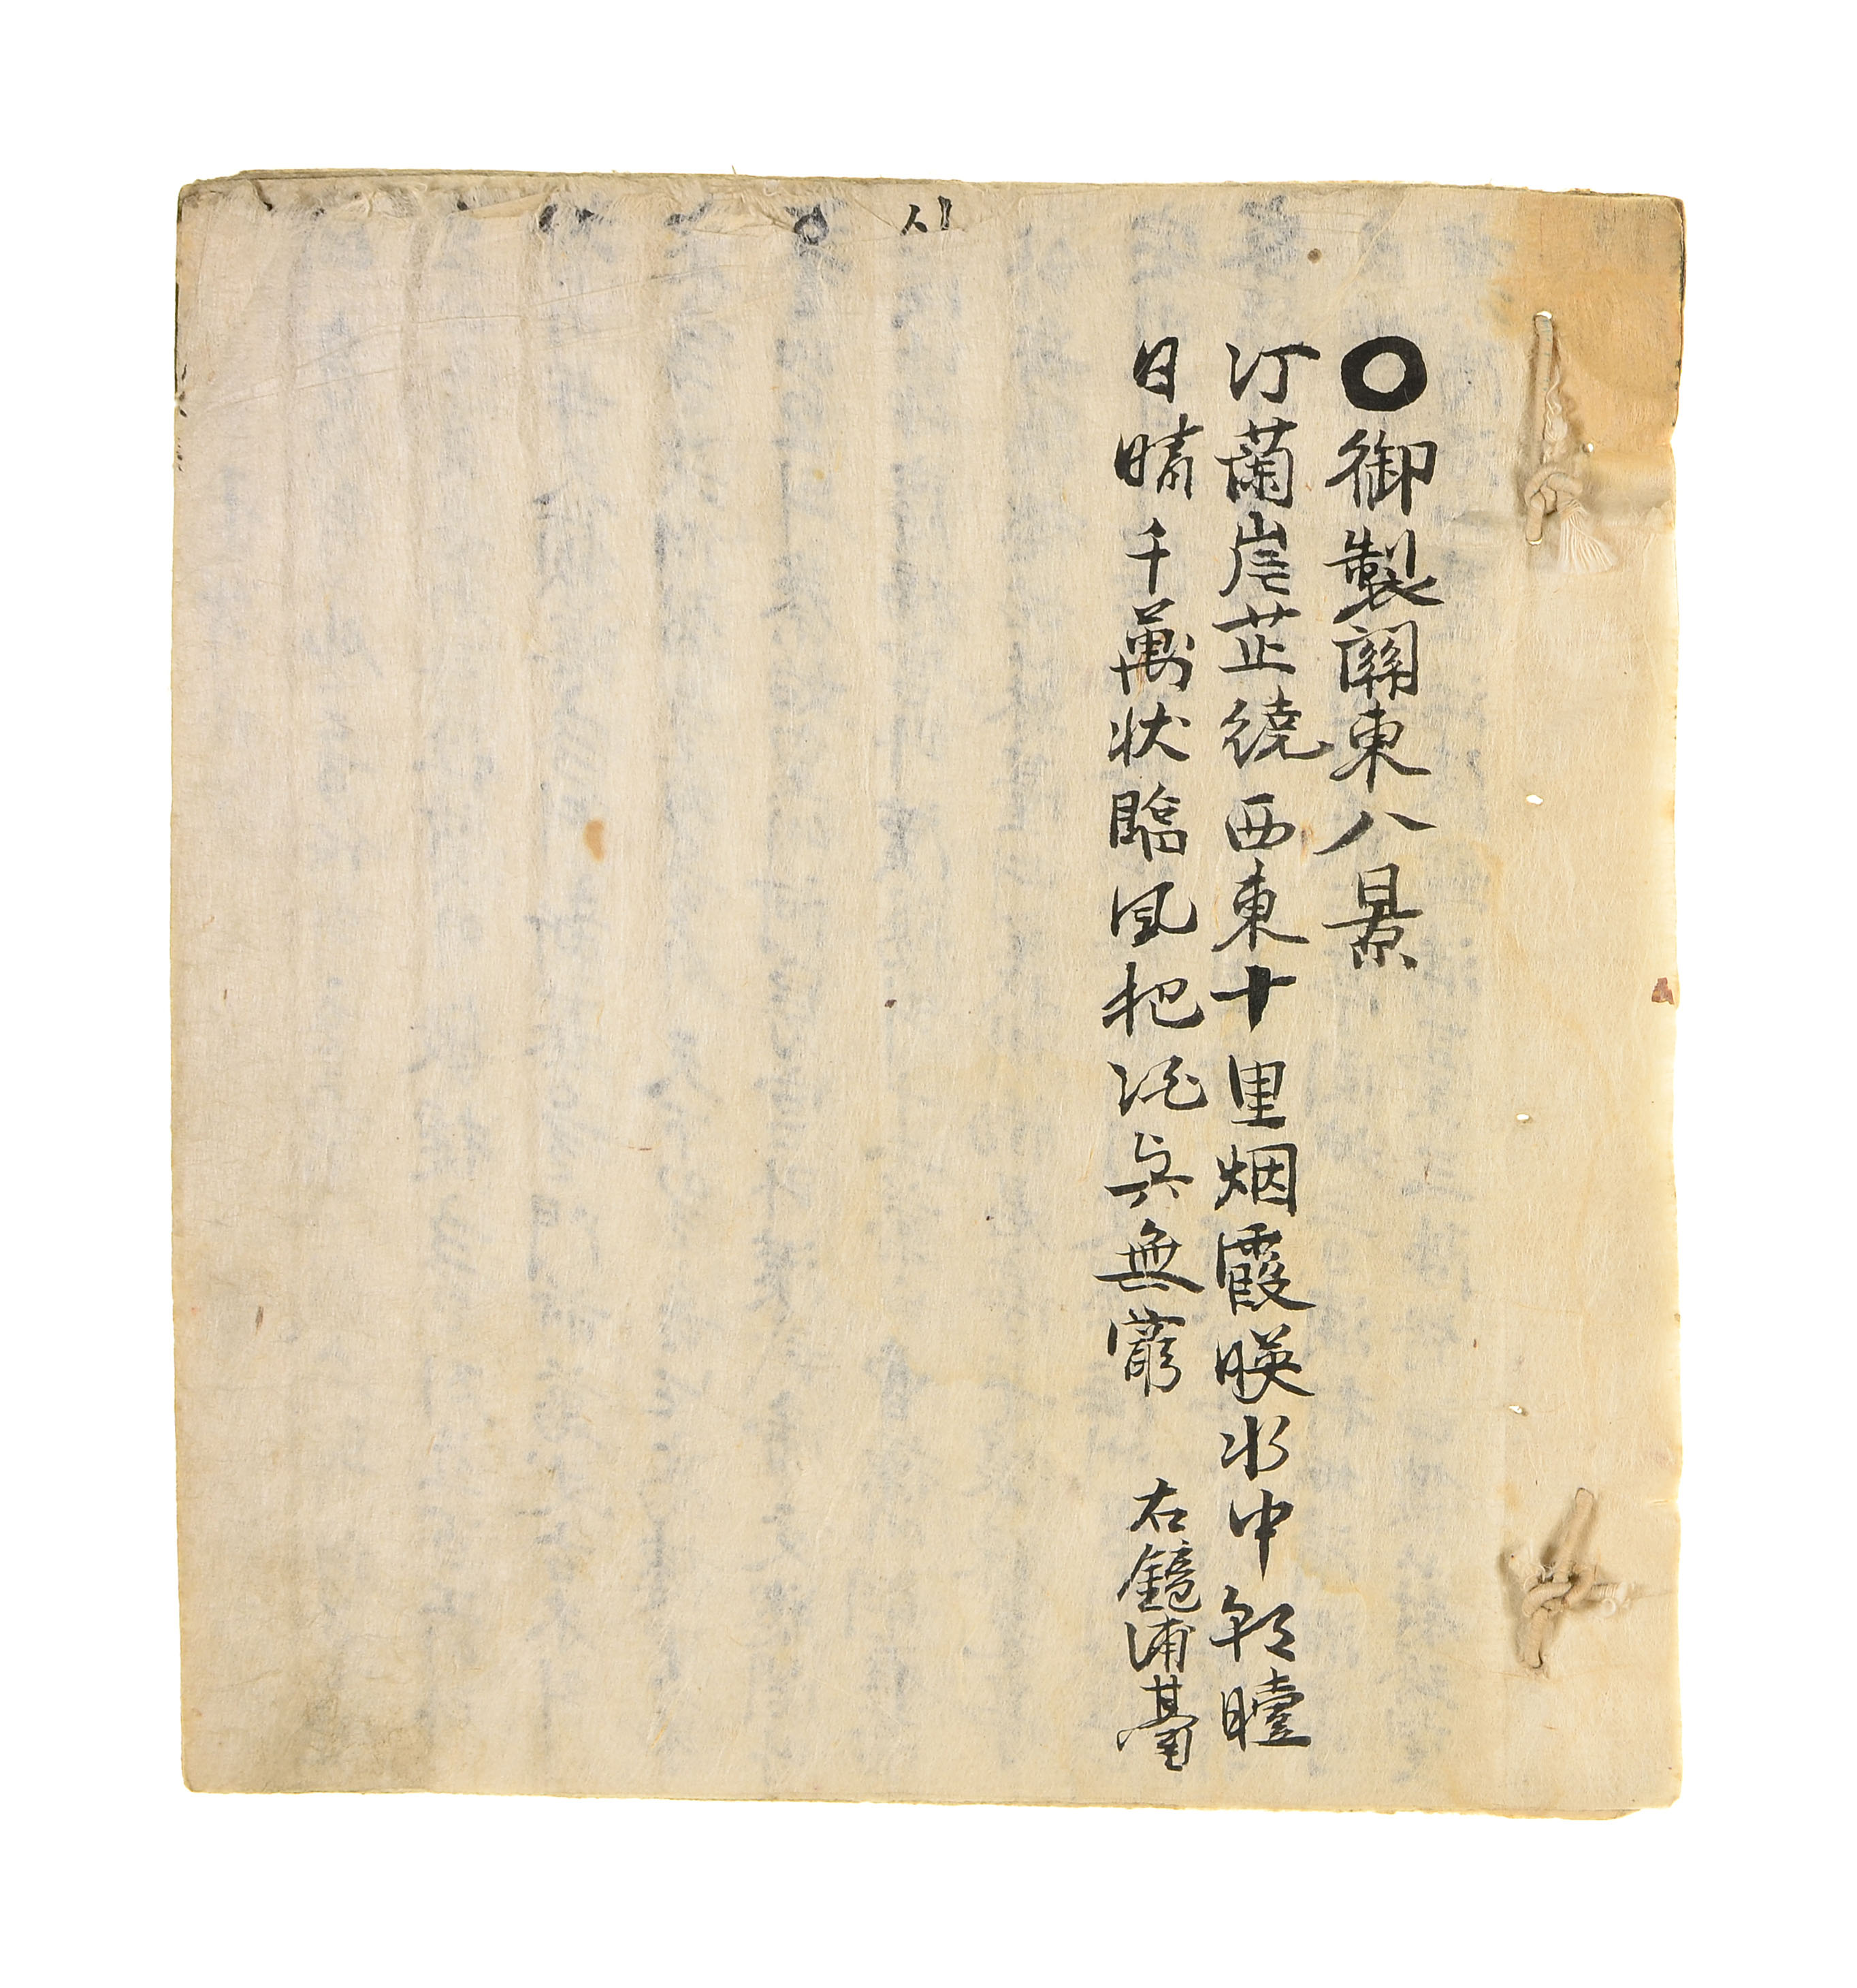 ○御製關東八景
汀蘭崖芷繞西東十里烟霞暎水中朝曀
日晴千萬狀臨風把酒興無窮 右鏡浦臺